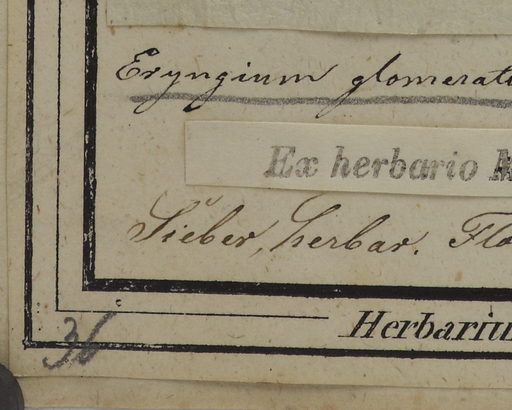 Eryngium glomerat
Ex herbario
Sieber, herbar. Flo
Herbariu
36